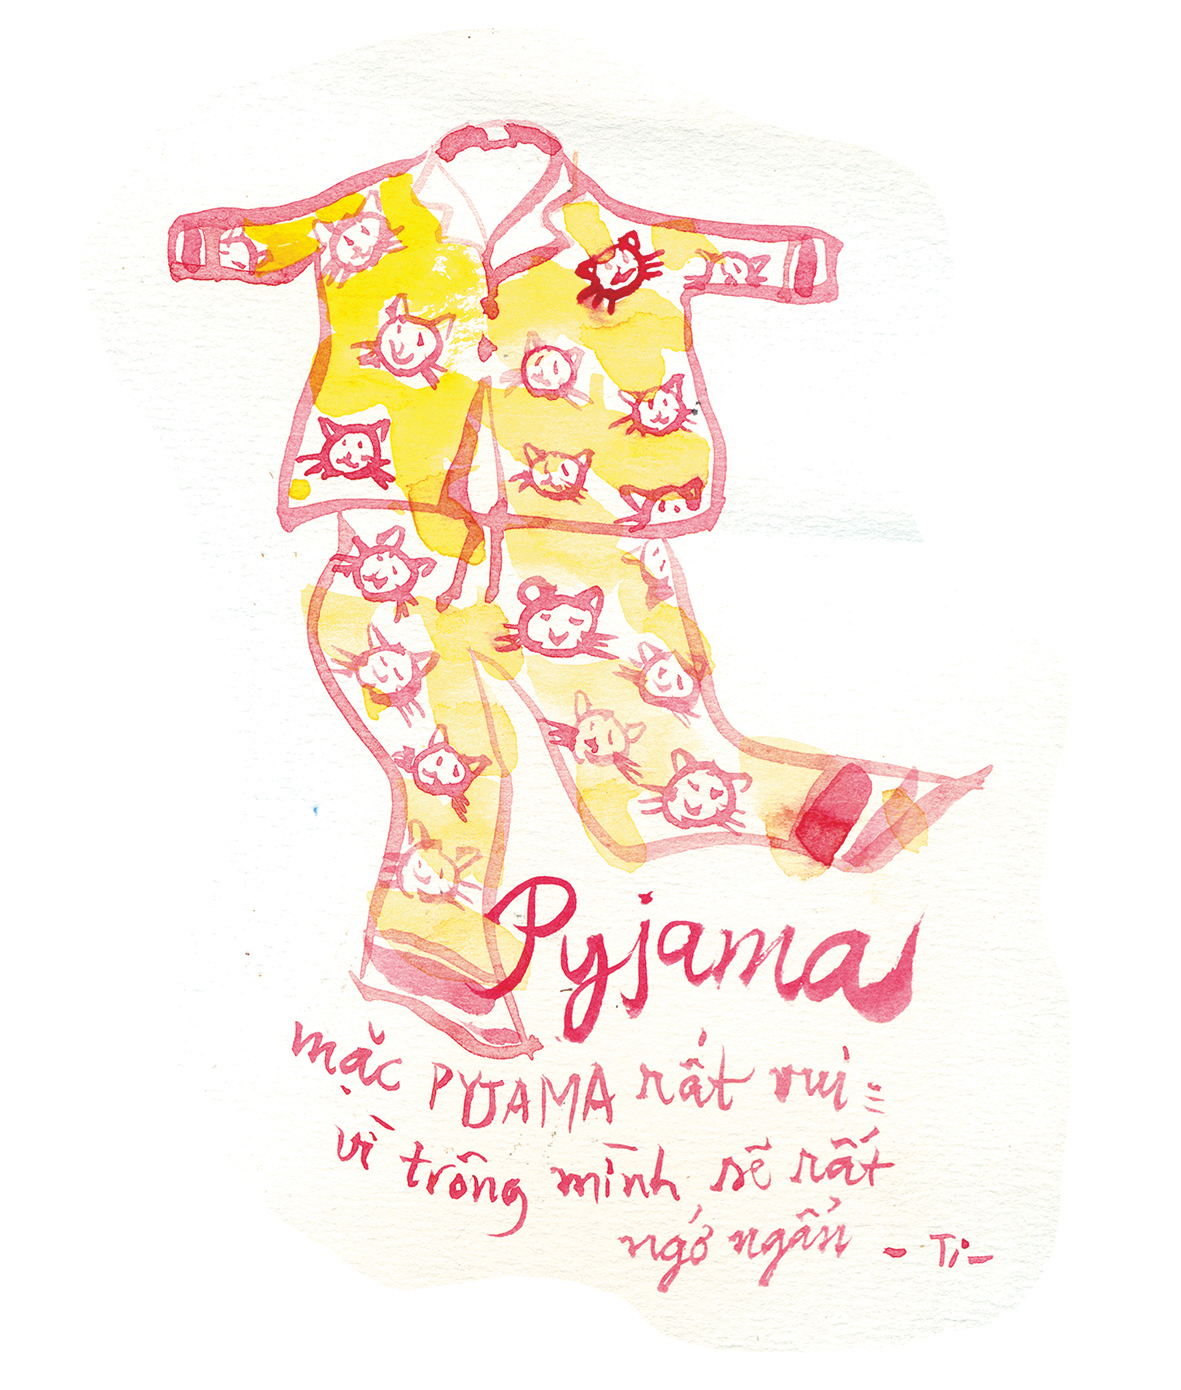 Pyjama
mặc PYJAMA rất vui
vì trông mình sẽ rất
ngớ ngẩn - Ti -